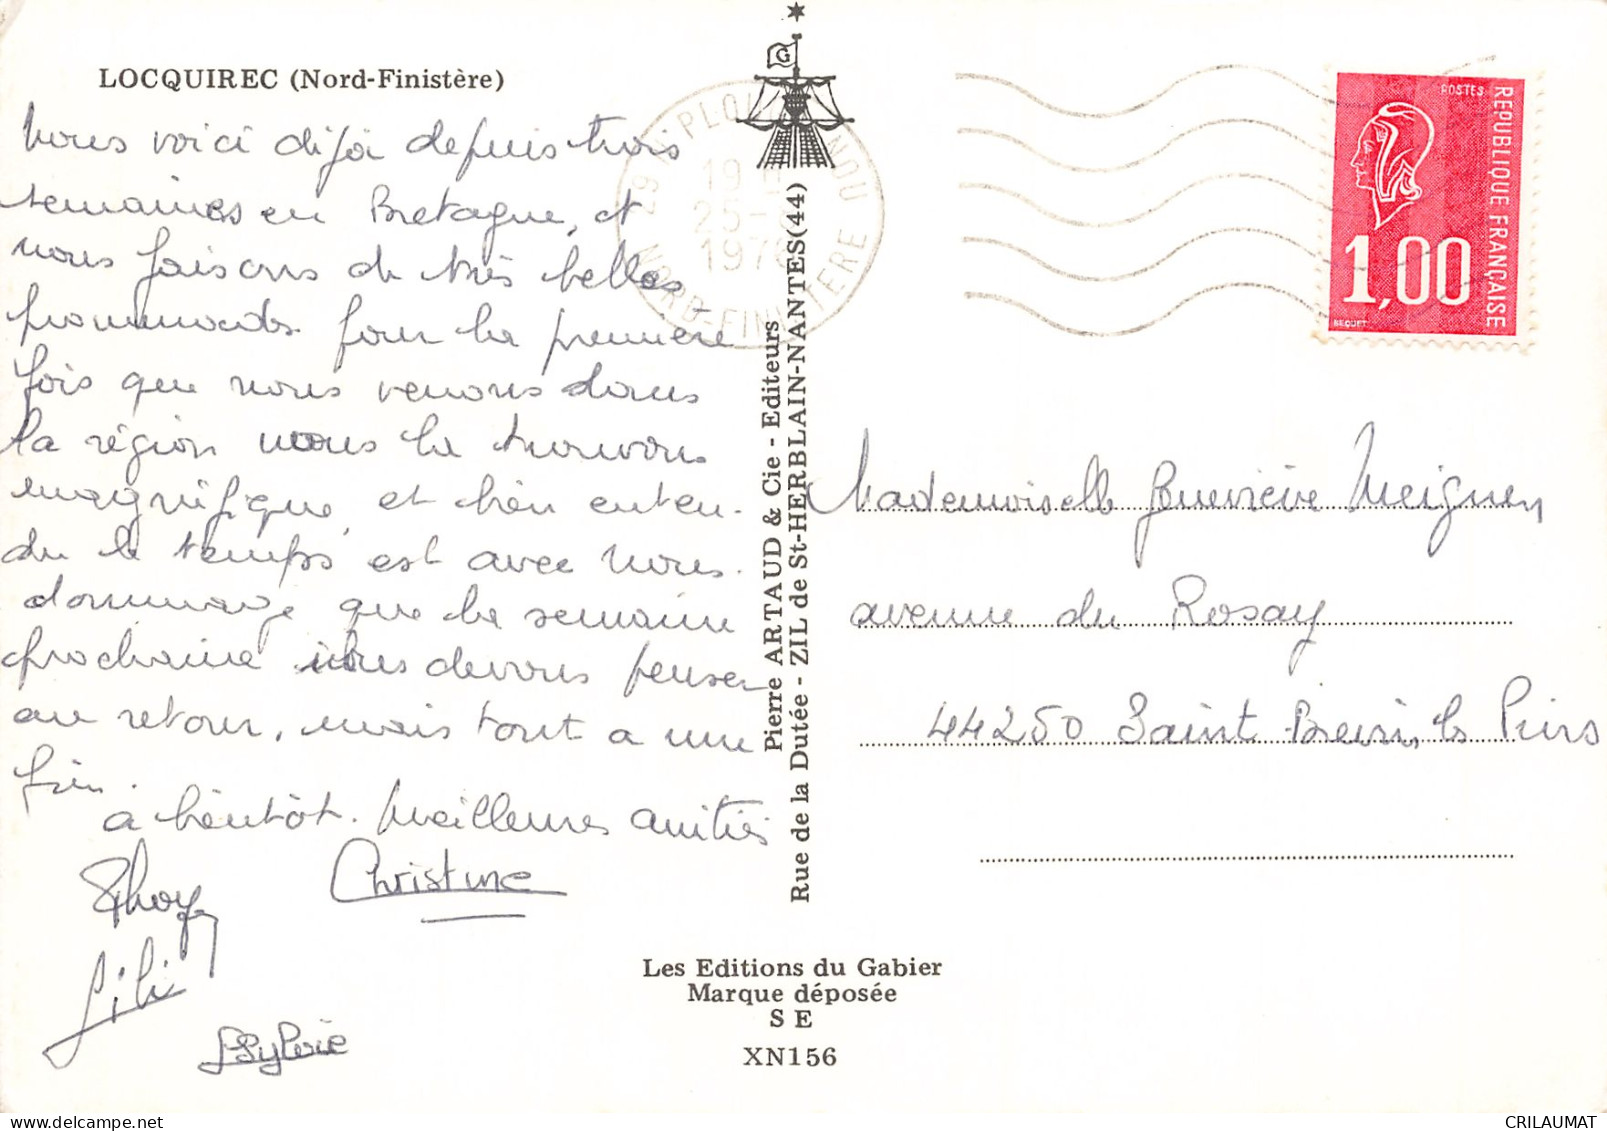 LOCQUIREC (Nord-Finistère)
Nous voici déjà depuis trois
semaines en Bretagne, et
nous faisons de très belles
prommenades pour la première
fois que nous venons dans
la région nous la trouvons
magnifique, et bien enten-
du le temps est avec nous.
dommage que la semaine
prochaine nous devons penser
au retour, mais tout a une
fin.
a bientôt. Meilleures amitiés
Christine
Lili
Sylvie
G
Pierre ARTAUD & Cie - Editeurs
Rue de la Dutée - ZIL de St-HERBLAIN-NANTES(44)
29 PLOU NOU
19
25-
197
NORD-FINISTERE
POSTES
REPUBLIQUE FRANÇAISE
1,00
BEQUET
Mademoiselle Geneviève Meignen
avenue du Rosay
44250 Saint Brevin les Pins
Les Editions du Gabier
Marque déposée
S E
XN156
CRILAUMAT